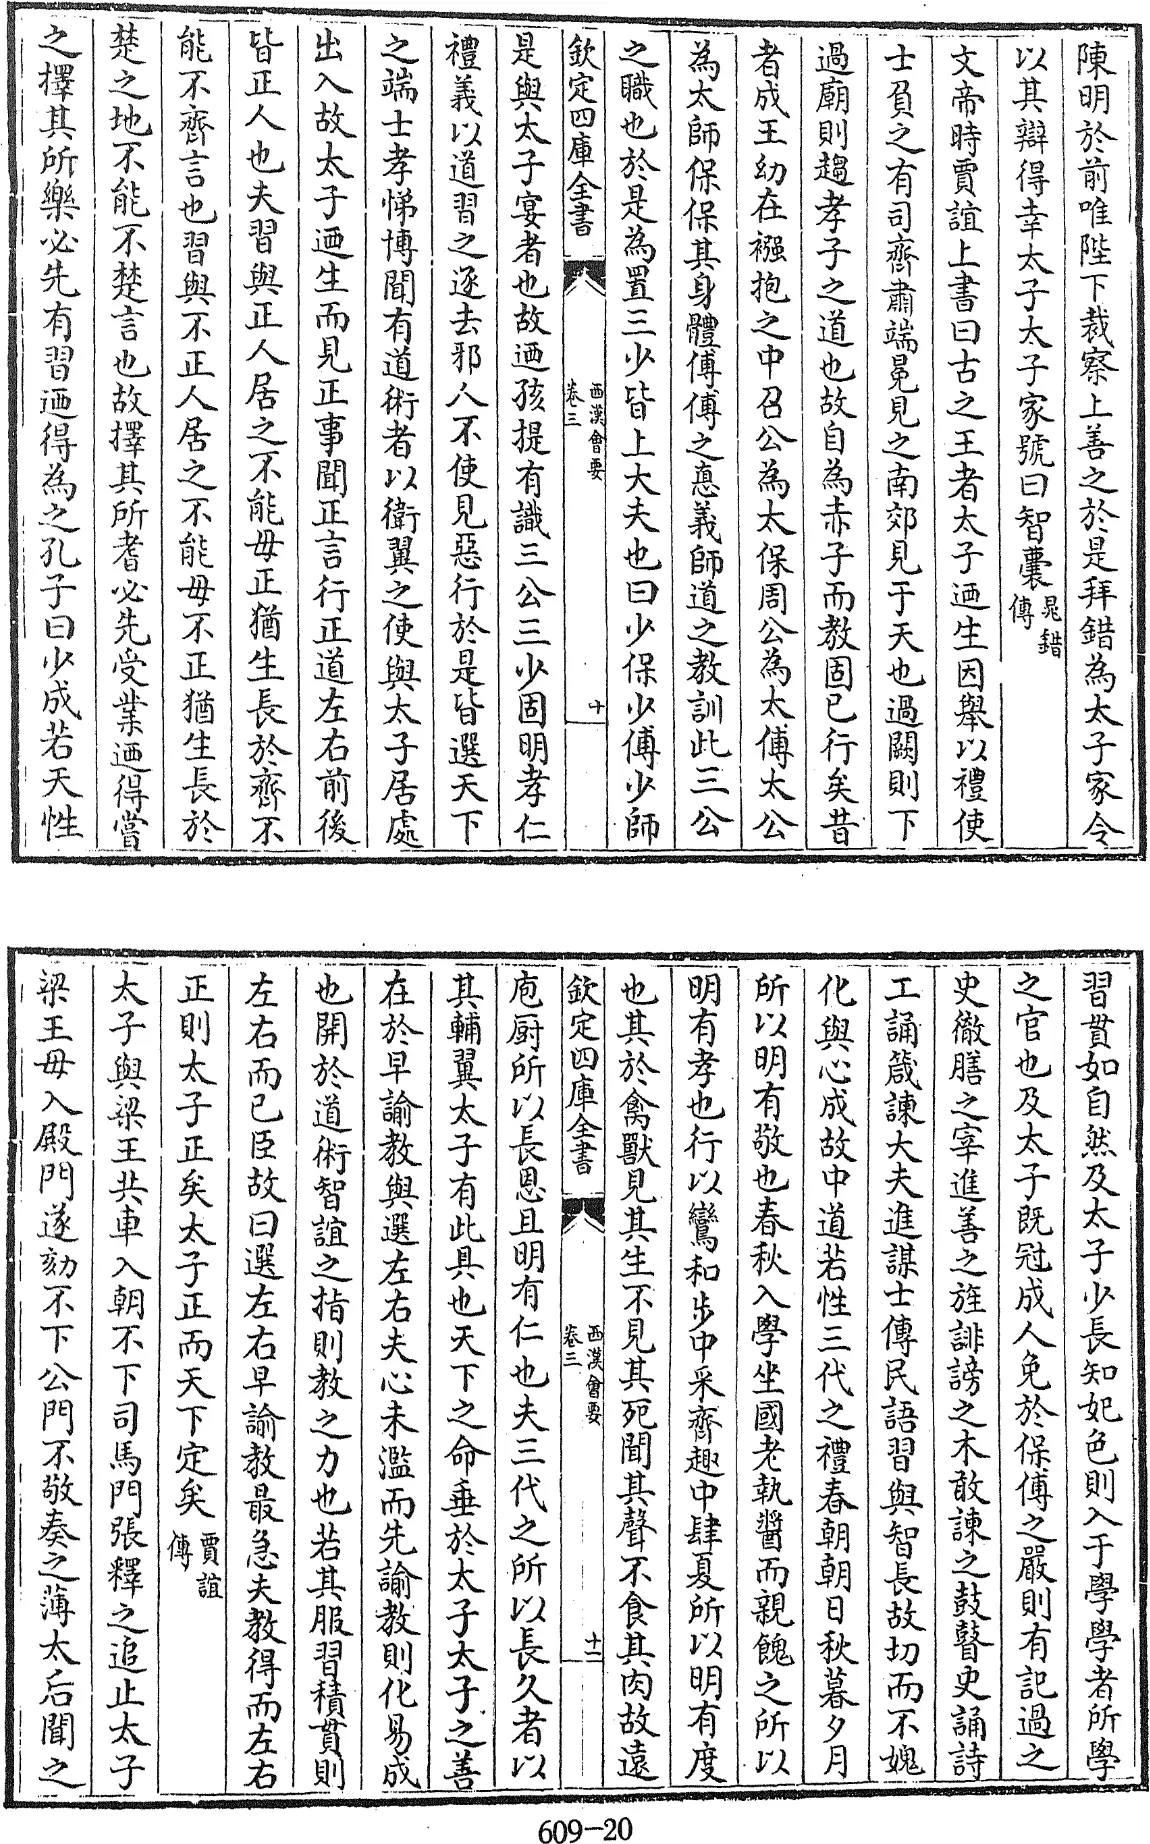 陳明於前唯陛下裁察上善之於是拜錯為太子家令
以其辯得幸太子太子家號曰智囊晁錯傳
文帝時賈誼上書曰古之王者太子迺生因舉以禮使
士負之有司齊肅端冕見之南郊見于天也過闕則下
過廟則趨孝子之道也故自為赤子而教固已行矣昔
者成王幼在襁抱之中召公為太保周公為太傅太公
為太師保保其身體傅傅之悳義師道之教訓此三公
之職也於是為置三少皆上大夫也曰少保少傅少師
欽定四庫全書
西漢會要
卷三
十
是與太子宴者也故迺孩提有識三公三少固明孝仁
禮義以道習之逐去邪人不使見惡行於是皆選天下
之端士孝悌博聞有道術者以衛翼之使與太子居處
出入故太子迺生而見正事聞正言行正道左右前後
皆正人也夫習與正人居之不能毋正猶生長於齊不
能不齊言也習與不正人居之不能毋不正猶生長於
楚之地不能不楚言也故擇其所耆必先受業迺得嘗
之擇其所樂必先有習迺得為之孔子曰少成若天性
習貫如自然及太子少長知妃色則入于學學者所學
之官也及太子既冠成人免於保傅之嚴則有記過之
史徹膳之宰進善之旌誹謗之木敢諫之鼓瞽史誦詩
工誦箴諫大夫進謀士傳民語習與智長故切而不媿
化與心成故中道若性三代之禮春朝朝日秋暮夕月
所以明有敬也春秋入學坐國老執醬而親餽之所以
明有孝也行以鸞和步中采齊趣中肆夏所以明有度
也其於禽獸見其生不見其死聞其聲不食其肉故遠
欽定四庫全書
西漢會要
卷三
十一
庖厨所以長恩且明有仁也夫三代之所以長久者以
其輔翼太子有此具也天下之命垂於太子太子之善
在於早諭教與選左右夫心未濫而先諭教則化易成
也開於道術智誼之指則教之力也若其服習積貫則
左右而已臣故曰選左右早諭教最急夫教得而左右
正則太子正矣太子正而天下定矣賈誼傳
太子與梁王共車入朝不下司馬門張釋之追止太子
梁王毋入殿門遂劾不下公門不敬奏之薄太后聞之
609-20